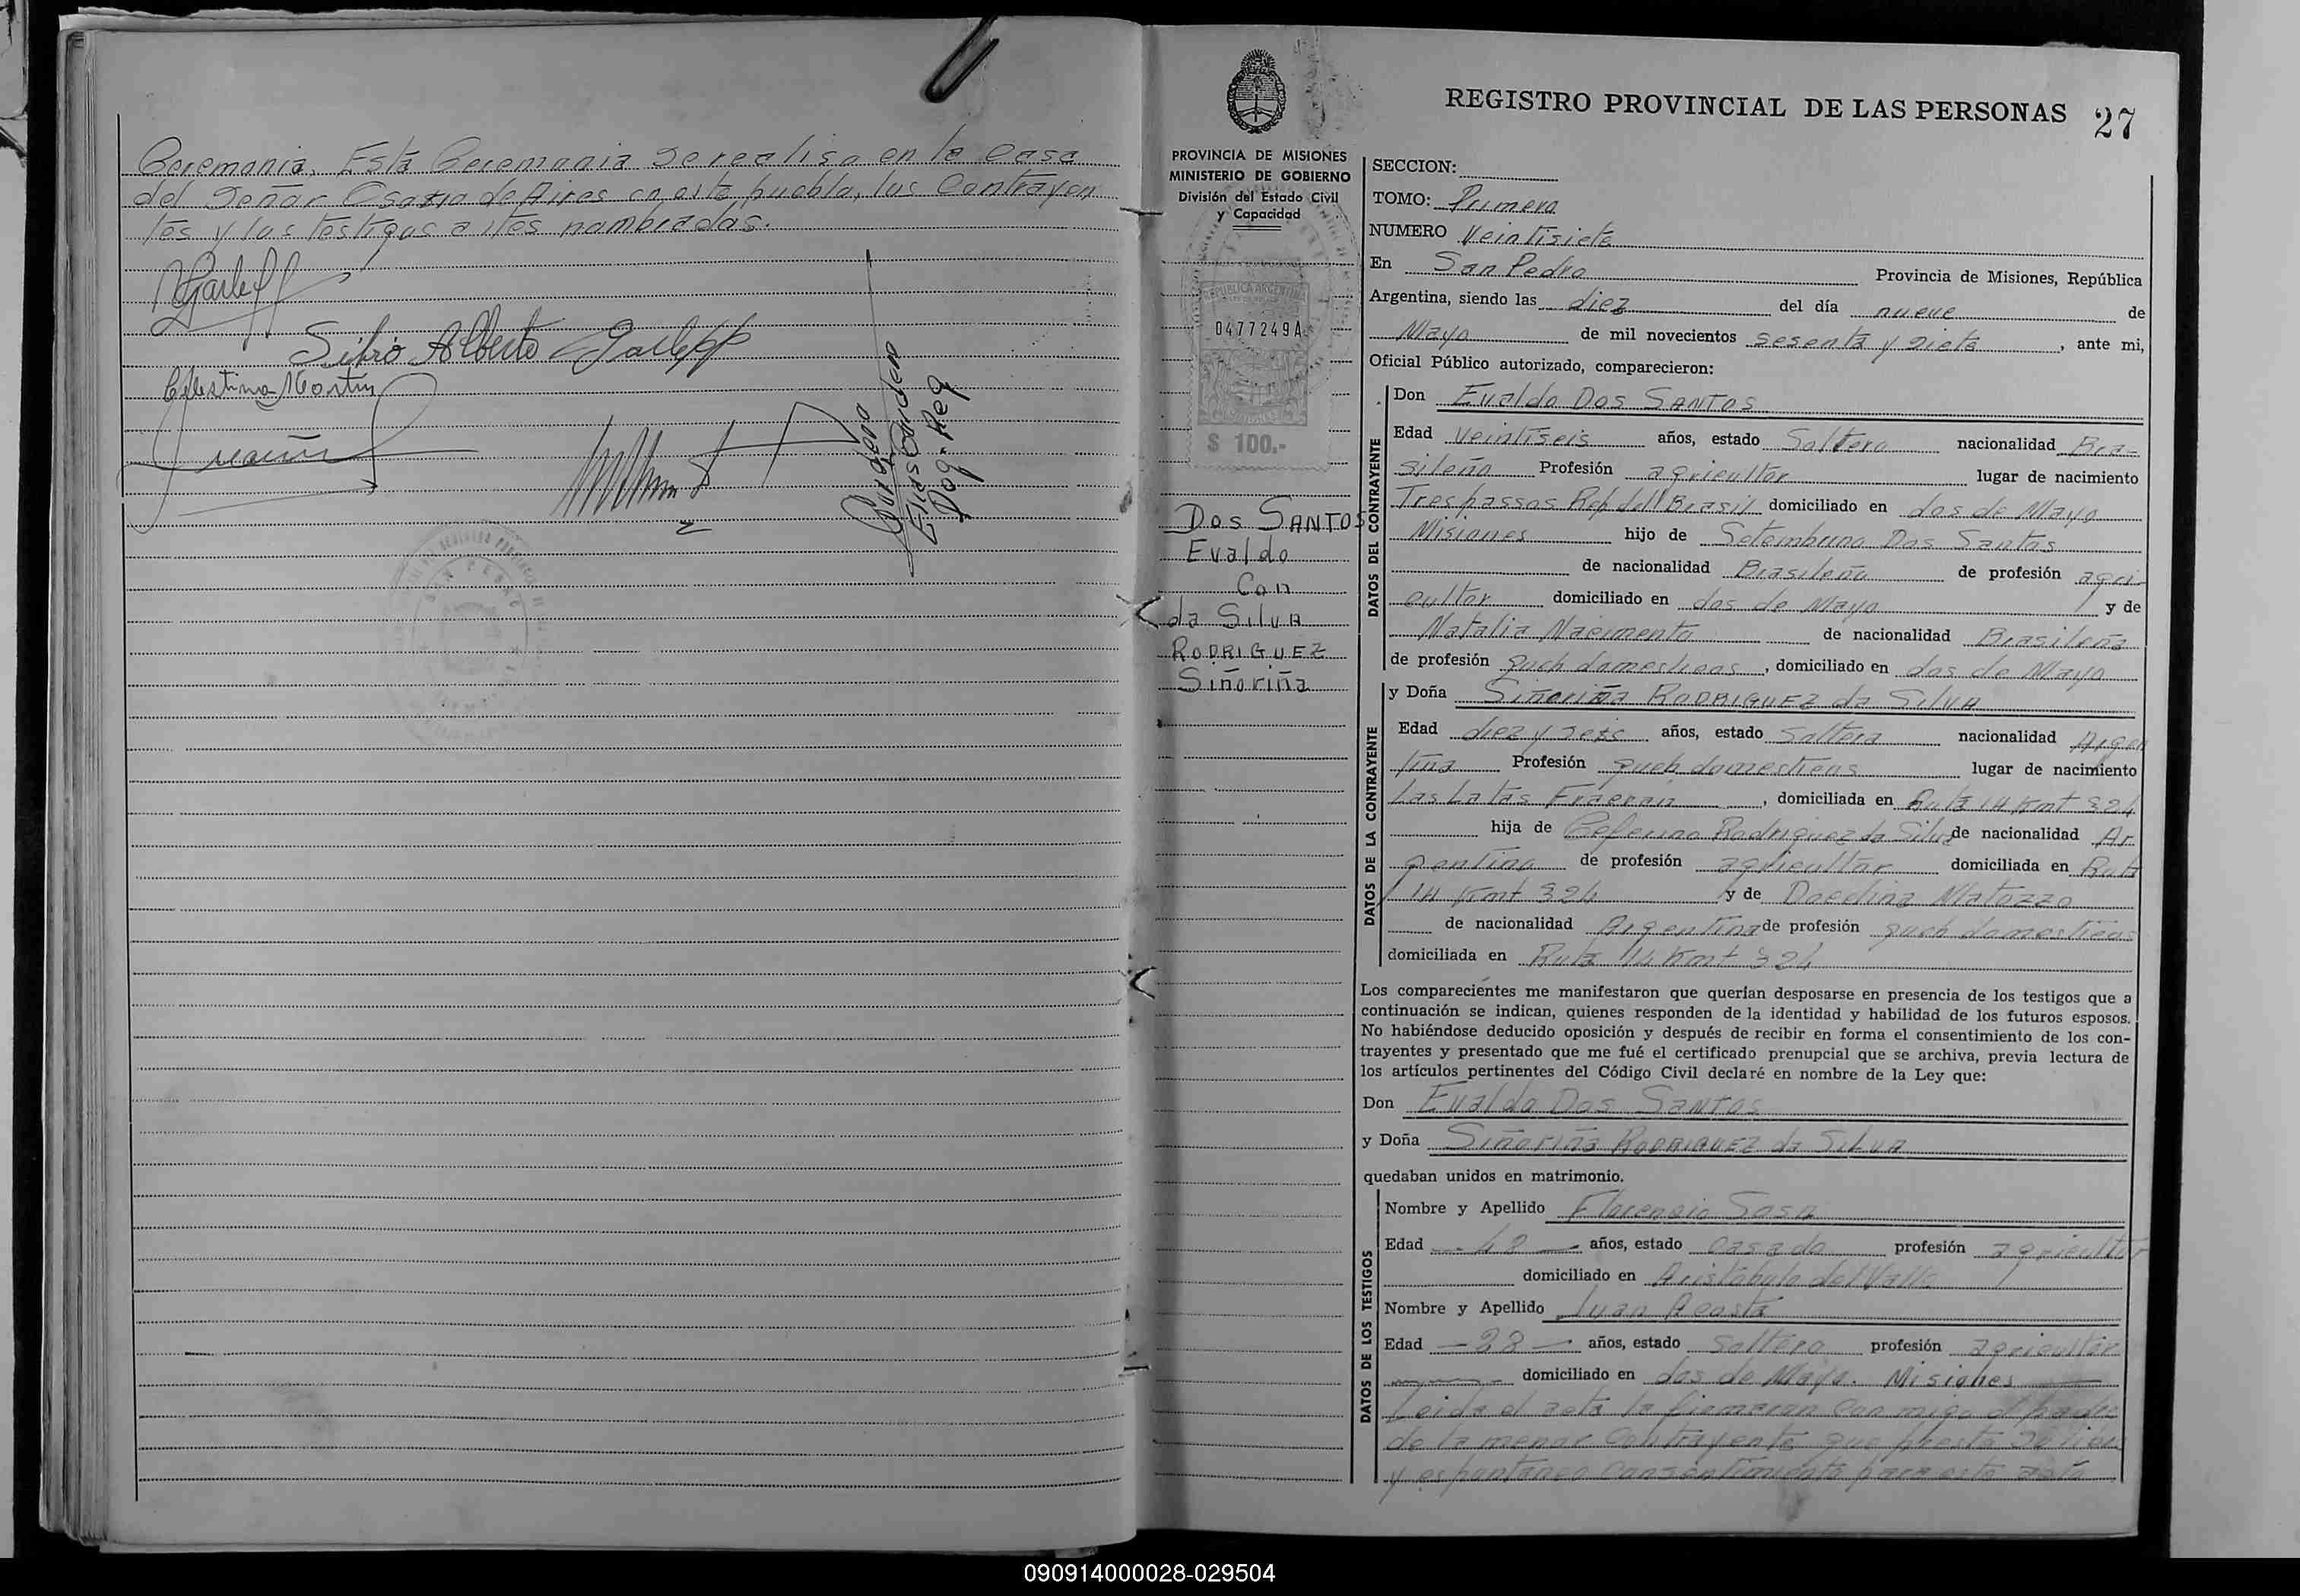 Ceremonia. Está Ceremonia se realisa en la Casa
del Señor Osorio de Aires en este pueblo, los Contrayen
tes y los testigos antes nombrados.
Silvio Alberto Garlepp
Celestina
Elias Cordero
REGISTRO PROVINCIAL DE LAS PERSONAS 27
PROVINCIA DE MISIONES
MINISTERIO DE GOBIERNO
División del Estado Civil
y Capacidad
REPUBLICA ARGENTINA
0477249A
$ 100.-
Dos SANTOS
Evaldo
Con
da SilvA
RODRIGUEZ
Siñoriña
SECCION:
TOMO: Primero
NUMERO Veintisiete
En San Pedro Provincia de Misiones, República
Argentina, siendo las diez del día nueve de
Mayo de mil novecientos sesenta y siete, ante mi,
Oficial Público autorizado, comparecieron:
DATOS DEL CONTRAYENTE
Don Evaldo Dos SANTOS
Edad Veintiseis años, estado Soltero nacionalidad Bra-
sileña Profesión agricultor lugar de nacimiento
Tres passos Rep del Brasil domiciliado en dos de Mayo
Misiones hijo de Setembrino Dos Santos
de nacionalidad Brasileña de profesión agri-
cultor domiciliado en dos de Mayo y de
Natalia Nacimento de nacionalidad Brasileña
de profesión queh domesticos, domiciliado en dos de Mayo
DATOS DE LA CONTRAYENTE
y Doña Siñoriña RODRIGUEZ da SilvA
Edad diez y seis años, estado Soltera nacionalidad Argen
tina Profesión queh domesticos lugar de nacimiento
Las Latas Fracran, domiciliada en Ruta 14 Kmt 324
hija de Ceferino Rodriguez da Silva de nacionalidad Ar
gentino de profesión agricultor domiciliada en Ruta
14 Kmt 324 y de Doedina Matozzo
de nacionalidad Argentina de profesión queh domesticos
domiciliada en Ruta 14 Kmt 324
Los comparecientes me manifestaron que querían desposarse en presencia de los testigos que a
continuación se indican, quienes responden de la identidad y habilidad de los futuros esposos.
No habiéndose deducido oposición y después de recibir en forma el consentimiento de los con-
trayentes y presentado que me fué el certificado prenupcial que se archiva, previa lectura de
los artículos pertinentes del Código Civil declaré en nombre de la Ley que:
Don Evaldo Dos SANTOS
y Doña Siñoriña RODRIGUEZ da SilvA
quedaban unidos en matrimonio.
DATOS DE LOS TESTIGOS
Nombre y Apellido Florencio Sosa
Edad 42 años, estado Casado profesión agricultor
domiciliado en Aristobulo del Valle
Nombre y Apellido Juan Acosta
Edad 28 años, estado Soltero profesión agricultor
domiciliado en dos de Mayo. Misiones
Leida el acta la firmaron Conmigo el padre
de la menor Contrayente que presta su libre
y espontaneo Consentimiento para este acto
090914000028-029504